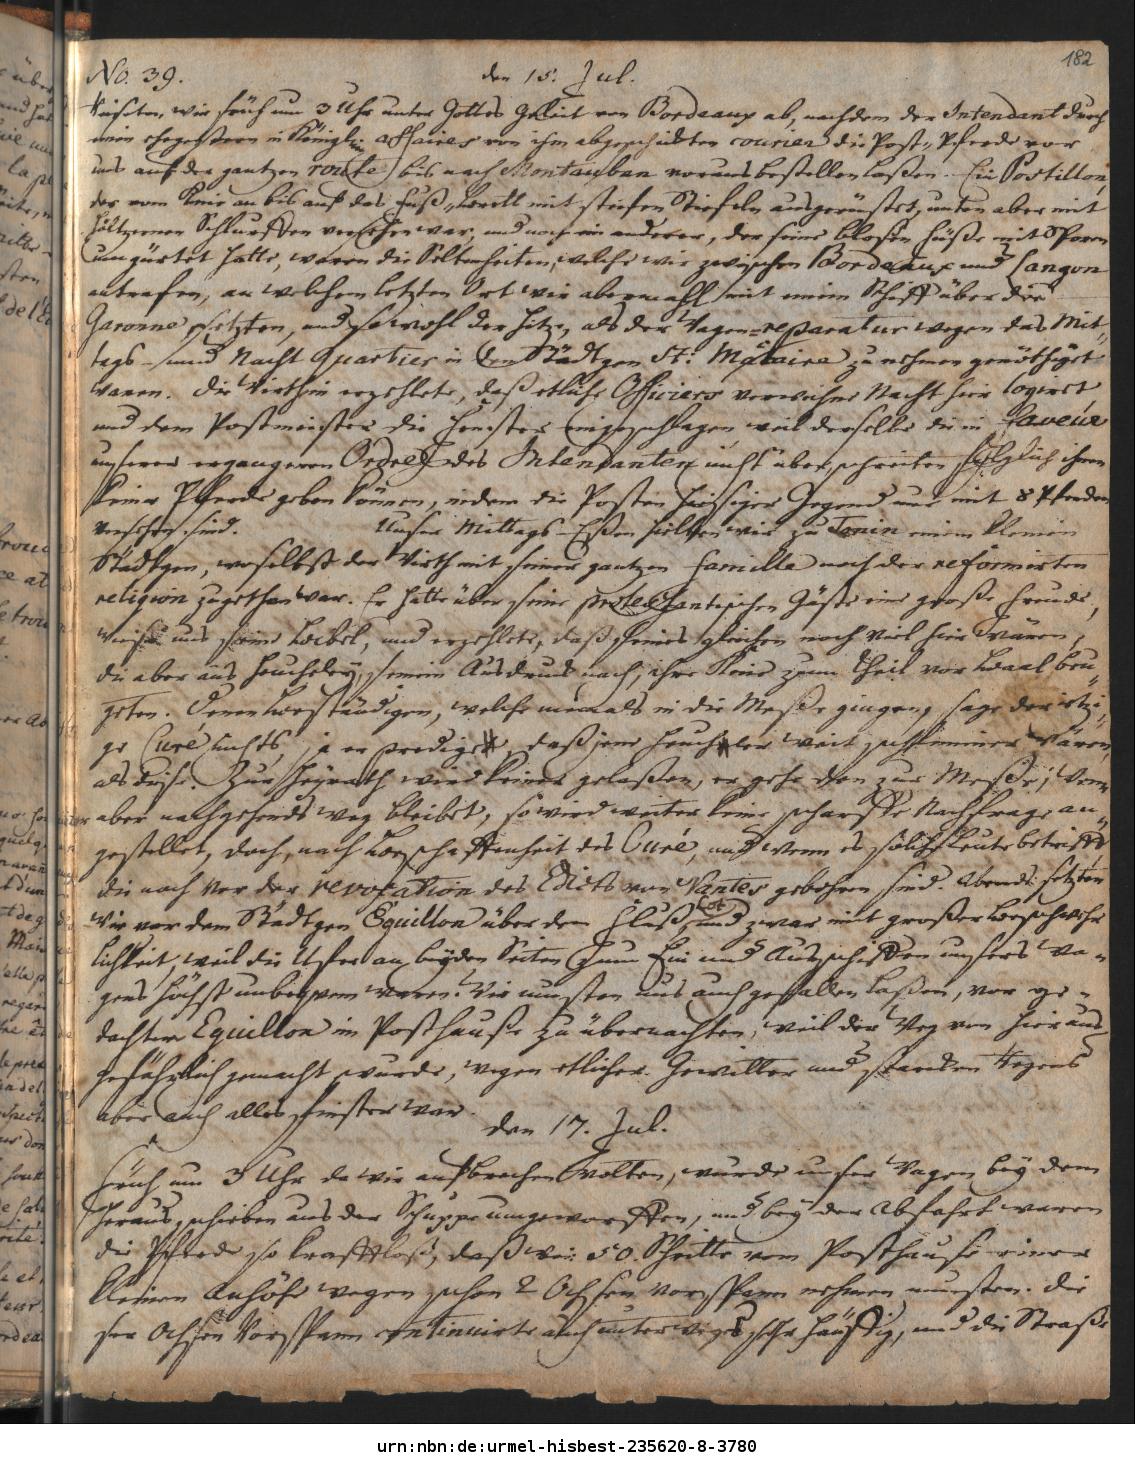 182
No. 39. den 15. Jul.
Reiseten wir früh um 3 Uhr unter Gottes Geleit von Bordeaux ab, nachdem der Intendant durch
einen ehegestern in Königl. affaires von ihm abgeschickten courier die Post-Pferde vor
uns auf der gantzen route bis nach Montauban voraus bestellen laßen. Ein Postillon,
der vom Knie an bis auf das Fuß-brett mit steifen Stiefeln ausgerüstet, unten aber mit
höltzernen Schlurffen versehen war, und noch ein anderer, der seine blosen Füße mit Sporn
umgürtet hatte, waren die Seltenheiten, welche wir zwischen Bordeaux und Langon
antrafen, an welchem letzten Ort wir abermahl mit einem Schiff über die
Garonne setzten, und sowohl der Hitze, als der Wagen-reparatur wegen das Mit-
tags- und Nacht quartier in dem Städtgen St. Macaire zu nehmen genöthiget
waren. Die Wirthin erzehlete, daß etliche Officiers verwichne Nacht hier logiret
und dem Postmeister die Fenster eingeschlagen weil derselbe die in faveur
unserer ergangenen Ordre des Intendanten nicht überschreiten folglich ihnen
keine Pferde geben können, indem die Posten hiesiger Gegend nur mit 8 Pferden
versehen sind. Unser Mittags-Eßen hielten wir zu Tonin einem kleinen
Städtgen, woselbst der Wirth mit seiner gantzen famille noch der reformirten
religion zugethan war. Er hatte über seine protestantischen Gäste eine große Freude,
wiese uns seine Bibel, und erzehlete, daß seines gleichen noch viel hier wären,
die aber aus Heucheley, seinem Ausdruck nach, ihre Knie zum Theil vor Baal beu-
geten. Denen beständigen, welche niemals in die Meße giengen, sage der itzi-
ge Curé nichts, ja er predige, daß jene Heuchler weit schlimmer wären,
als diese. Zur Heyrath wird keiner gelaßen, er gehe den zur Meße; wenn
aber nachgehends weg bleibet, so wird weiter keine scharffe Nachfrage an-
gestellet, doch, nach Beschaffenheit des Curé, und wenn es solche Leute betrifft
die noch vor der revocation des Edicts von Nantes gebohren sind. Abends setzten
wir vor dem Städtgen Eguillon über den Fluß Lot und zwar mit großer Beschwehr-
lichkeit, weil die Ufer an beyden Seiten zum Ein und Ausschiffen unsers Wa-
gens höchst unbequem waren. Wir musten uns auch gefallen laßen, vor ge-
dachten Eguillon im Posthause zu übernachten, weil der Weg von hier uns
gefährlich gemacht wurde, wegen etlicher Gewitter und starcken Regens
aber auch alles finster war.
den 17. Jul.
Früh um 3 Uhr da wir aufbrechen wolten, wurde unser Wagen bey dem
Herausschieben aus der Schuppe umgeworffen, und bey der Abfahrt waren
die Pferde so krafftloß, daß wir 50. Schritte vom Posthause einer
kleinen Anhöhe wegen schon 2 Ochsen Vorspann nehmen musten. Die
ser Ochsen Vorspann continuirte auch unterwegs sehr häuffig, und die Straße
urn:nbn:de:urmel-hisbest-235620-8-3780